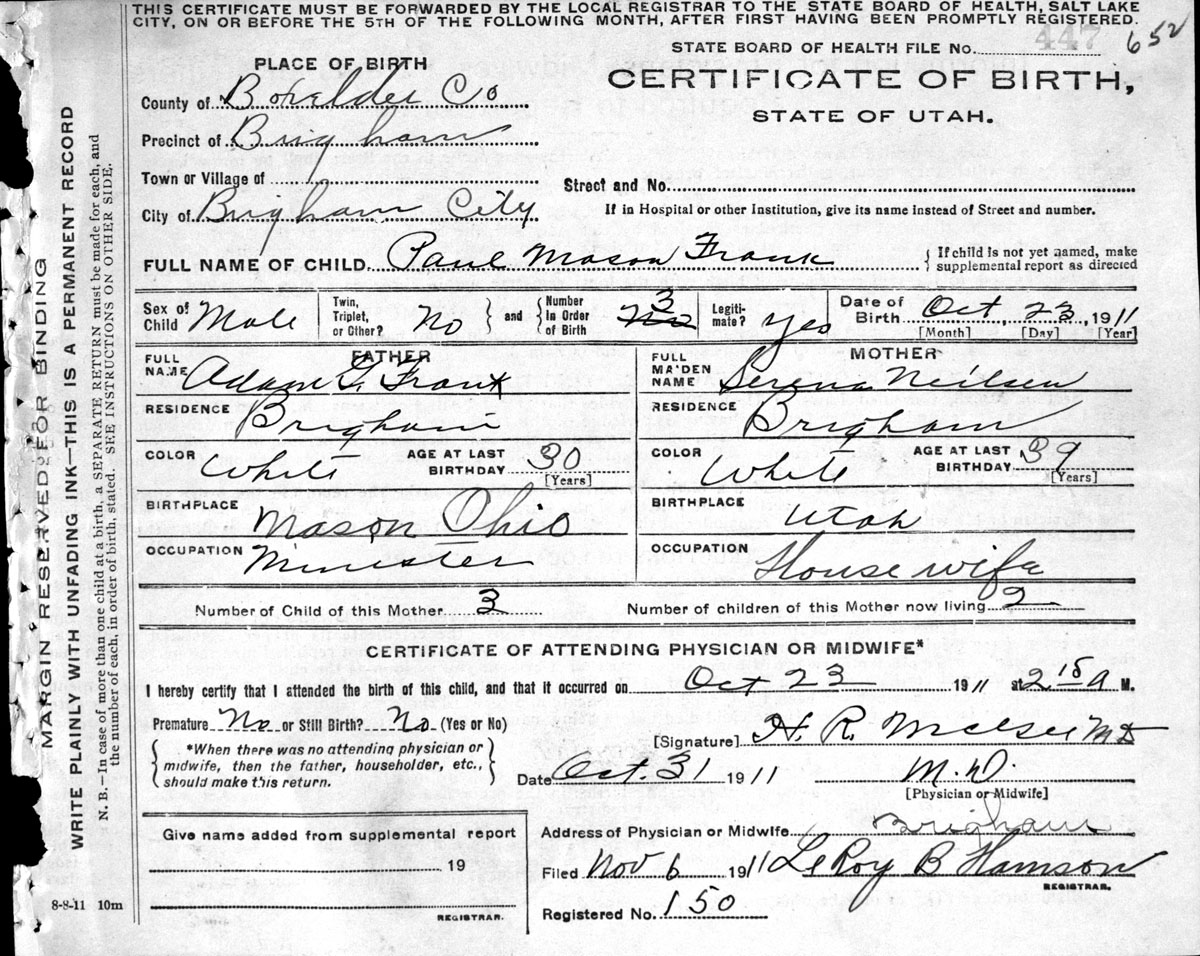 THIS CERTIFICATE MUST BE FORWARDED BY THE LOCAL REGISTRAR TO THE STATE BOARD OF HEALTH, SALT LAKE
CITY, ON OR BEFORE THE 5TH OF THE FOLLOWING MONTH, AFTER FIRST HAVING BEEN PROMPTLY REGISTERED.
STATE BOARD OF HEALTH FILE No. 447 652
PLACE OF BIRTH
CERTIFICATE OF BIRTH,
STATE OF UTAH.
County of Boxelder Co
Precinct of Brigham
Town or Village of
Street and No.
City of Brigham City
If in Hospital or other Institution, give its name instead of Street and number.
FULL NAME OF CHILD Paul Mason Frank
If child is not yet named, make supplemental report as directed
Sex of Child Male Twin, Triplet, or Other? No and Number In Order of Birth 3 Legiti-mate? Yes Date of Birth Oct 23, 1911
[Month] [Day] [Year]
FATHER
FULL NAME Adam G. Frank
RESIDENCE Brigham
COLOR White AGE AT LAST BIRTHDAY 30 [Years]
BIRTHPLACE Mason Ohio
OCCUPATION Minester
MOTHER
FULL MAIDEN NAME Serena Neilsen
RESIDENCE Brigham
COLOR White AGE AT LAST BIRTHDAY 39 [Years]
BIRTHPLACE Utah
OCCUPATION House wife
Number of Child of this Mother 3 Number of children of this Mother now living 2
CERTIFICATE OF ATTENDING PHYSICIAN OR MIDWIFE*
I hereby certify that I attended the birth of this child, and that it occurred on Oct 23 1911 at 2 15 A M.
Premature No or Still Birth? No (Yes or No)
[Signature] H. R. MD
*When there was no attending physician or
midwife, then the father, householder, etc.,
should make this return.
Date Oct. 31 1911 M.D.
[Physician or Midwife]
Give name added from supplemental report
19
REGISTRAR.
Address of Physician or Midwife Brigham
Filed Nov 6 1911 LeRoy B
REGISTRAR.
Registered No. 150
8-8-11 10m
MARGIN RESERVED FOR BINDING
WRITE PLAINLY WITH UNFADING INK—THIS IS A PERMANENT RECORD
N. B.—In case of more than one child at a birth, a SEPARATE RETURN must be made for each, and
the number of each, in order of birth, stated. SEE INSTRUCTIONS ON OTHER SIDE.